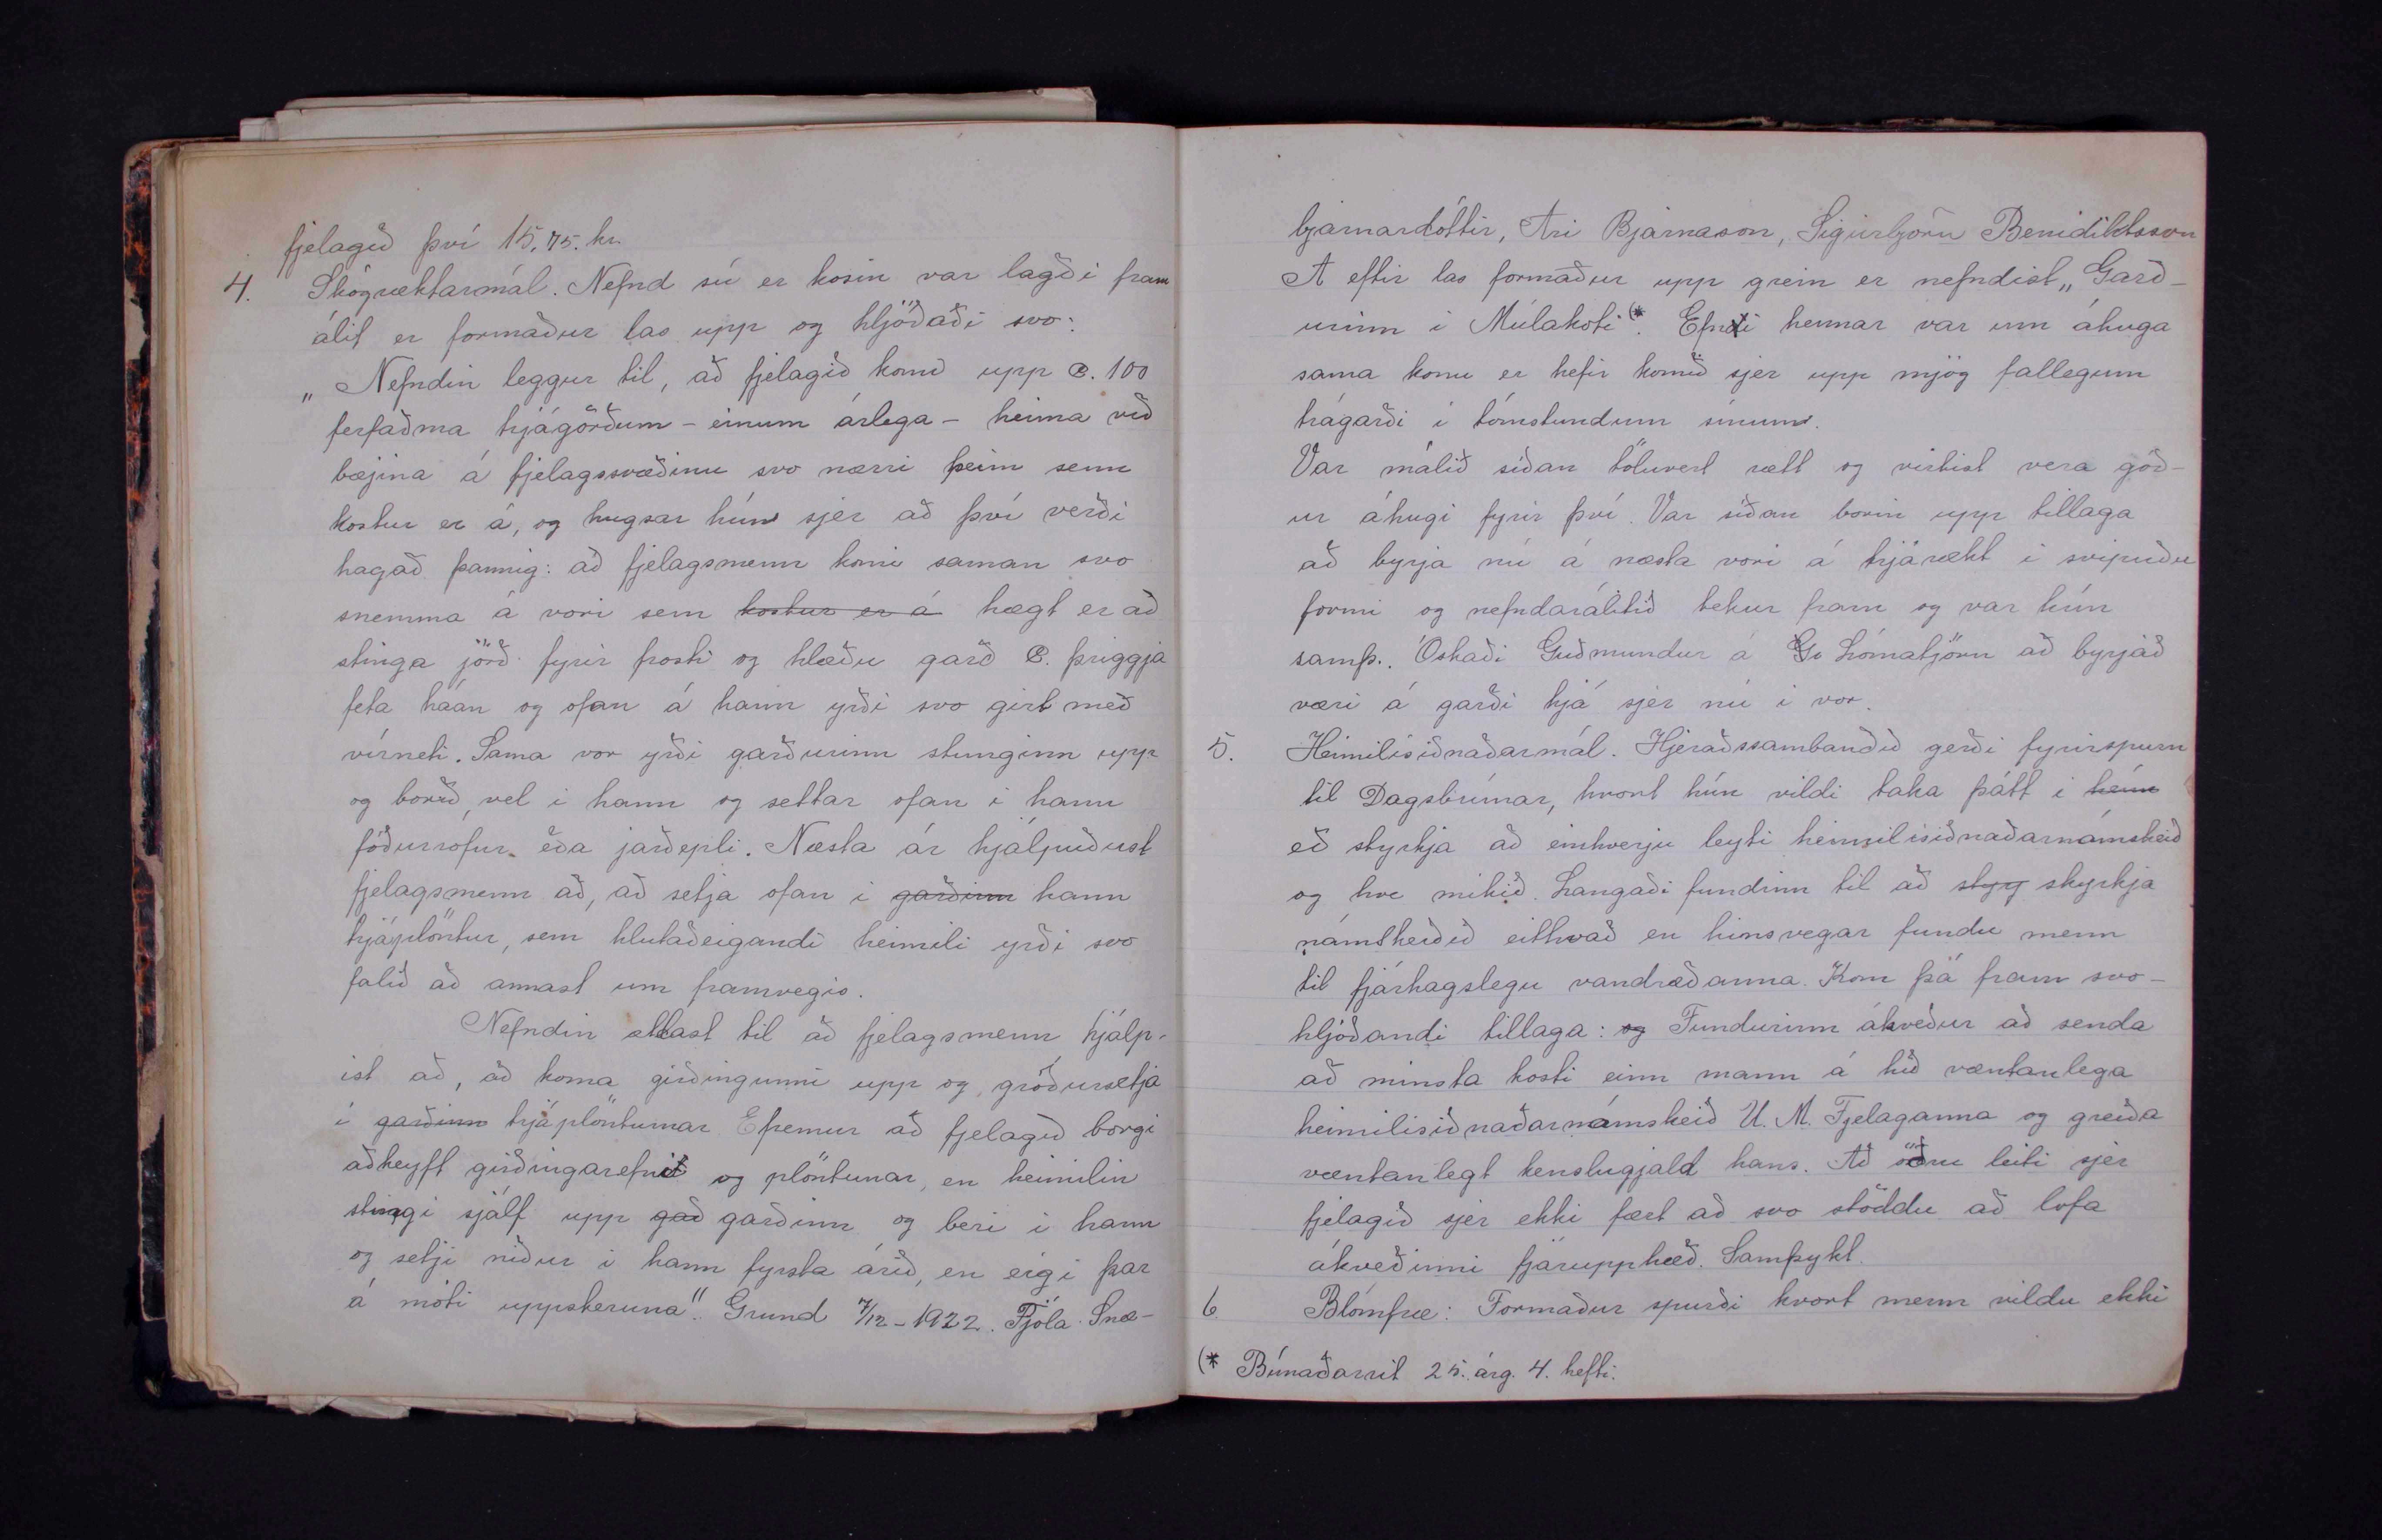 fjelagið því 15,75. kr.
4. Skógræktarmál. Nefnd sú er kosin var lagði fram
álit er formaður las upp og hljóðaði svo:
„Nefndin leggur til, að fjelagið komi upp c. 100
ferfaðma trjágörðum - einum árlega - heima við
bæjina á fjelagssvæðinu svo nærri þeim sem
kostur er á, og hugsar hún sjer að því verði
hagað þannig: að fjelagsmenn komi saman svo
snemma á vori sem kostur er á hægt er að
stinga jörð fyrir frosti og hlæðu garð c. þriggja
feta háan og ofan á hann yrði svo girt með
vírneti. Sama vor yrði garðurinn stunginn upp
og borið vel í hann og settar ofan í hann
fóðurrófur eða jarðepli. Næsta ár hjálpuðust
fjelagsmenn að, að setja ofan í garðinn hann
trjáplöntur, sem hlutaðeigandi heimili yrði svo
falið að annast um framvegis.
Nefndin ætlast til að fjelagsmenn hjálp-
ist að, að koma girðingunni upp og gróðursetja
í garðinn trjáplönturnar Efremur að fjelagið borgi
aðkeyft girðingarefnið og plöntunar, en heimilin
stingi sjálf upp gað garðinn og beri í hann
og setji niður í hann fyrsta árið, en eigi þar
á móti uppskeruna". Grund 7/12-1922. Fjóla Snæ-
bjarnardóttir, Ari Bjarnason, Sigurbjörn Benidiktsson
Á eftir las formaður upp grein er nefndist „Garð-
urinn í Múlakoti(*. Efni hennar var um áhuga
sama konu er hefir komið sjer upp mjög fallegum
trágarði í tómstundum sínum.
Var málið síðan töluvert rætt og virtist vera góð-
ur áhugi fyrir því. Var síðan borin upp tillaga
að byrja nú á næsta vori á trjárækt í svipuðu
formi og nefndarálitið tekur fram og var hún
samþ.. Óskaði Guðmundur á Lómatjörn að byrjað
væri á garði hjá sjer nú í vor.
5. Heimilisiðnaðarmál. Hjeraðssambandið gerði fyrirspurn
til Dagsbrúnar, hvort hún vildi taka þátt í heim
eð styrkja að einhverju leyti heimilisiðnaðarnámskeið
og hve mikið. Langaði fundinn til að styrkja
námskeiðið eithvað en hinsvegar fundu menn
til fjárhagslegu vandræðanna. Kom þá fram svo-
hljóðandi tillaga: og Fundurinn ákveður að senda
að minsta kosti einn mann á hið væntanlega
heimilisiðnaðarnámskeið U. M. Fjelaganna og greiða
væntanlegt kenslugjald hans. Að öðru leiti sjer
fjelagið sjer ekki fært að svo stöddu að lofa
ákveðinni fjárupphæð. Samþykt.
6. Blómfræ: Formaður spurði hvort menn vildu ekki
(* Búnaðarrit 25. árg. 4. hefti.